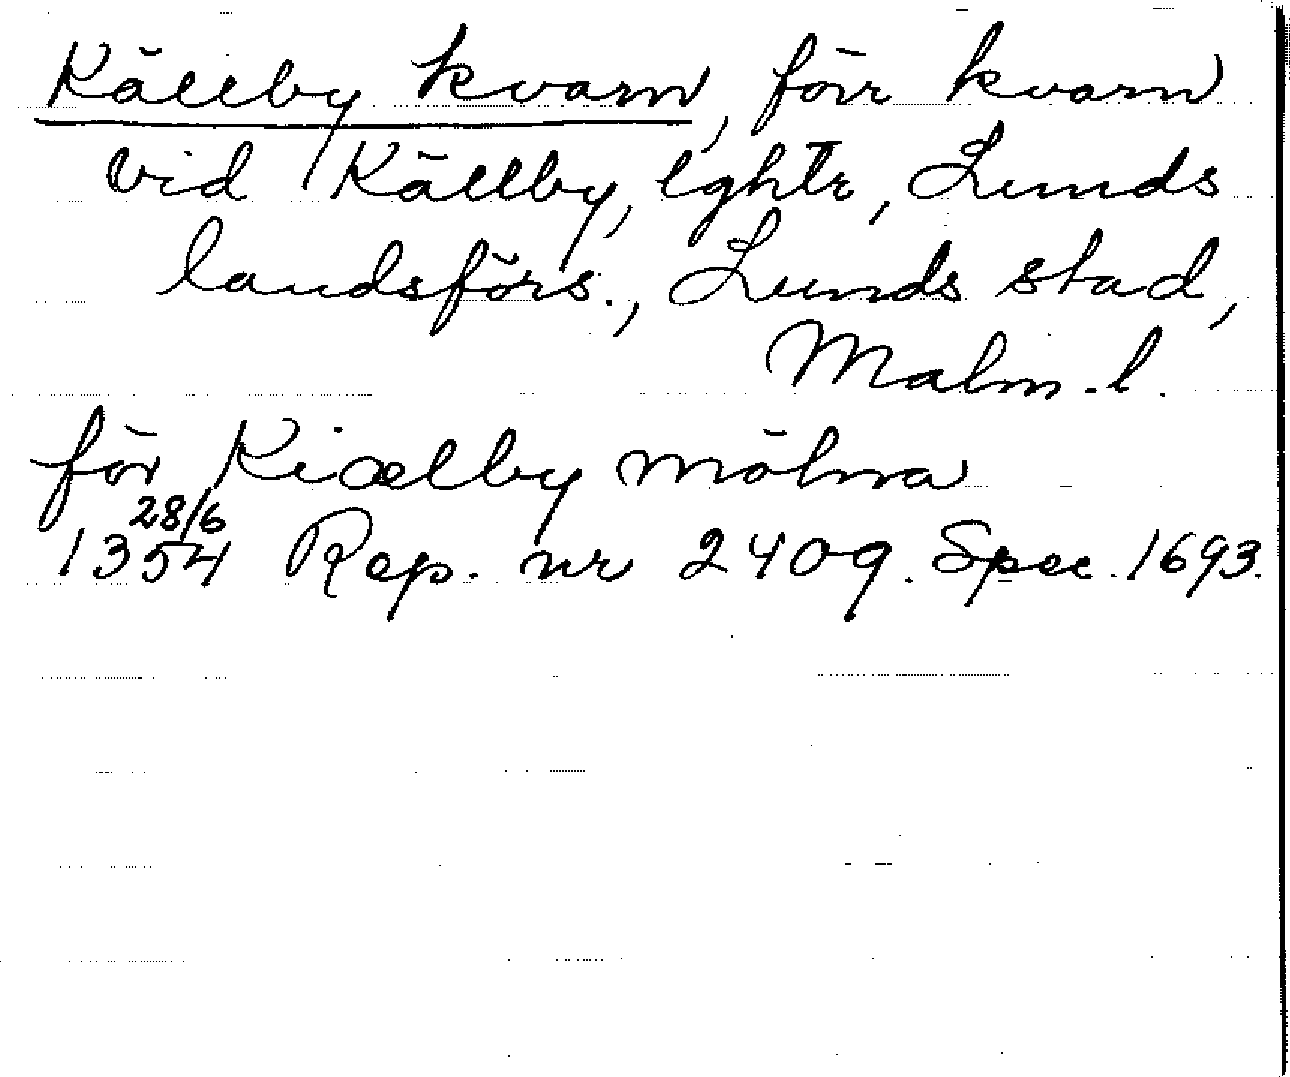 Källby kvarn, förr kvarn
vid Källby, lghtr, Lunds
landsförs., Lunds stad,
Malm. l.
för Kiælby mølna
28/6
1354 Rep. nr 2409. Spec. 1693.